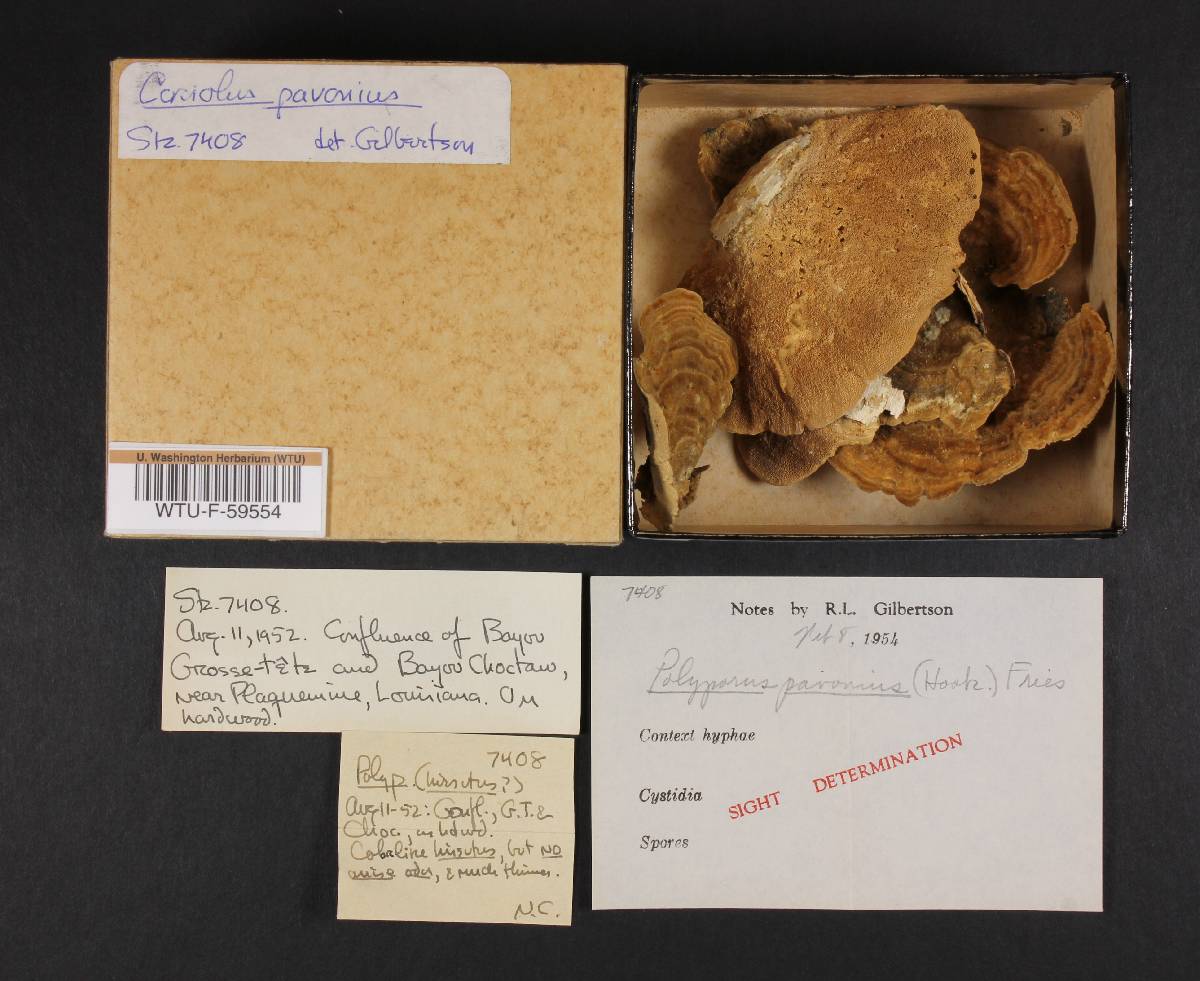 Coriolus pavonius
Stz. 7408 det. Gilbertson
U. Washington Herbarium (WTU)
WTU-F-59554
Stz. 7408.
Aug. 11, 1952. Confluence of Bayou
Grosse-Tête and Bayou Choctaw,
near Plaquemine, Louisiana. On
hardwood.
7408
Polyp. (hirsutus?)
Aug 11-52: Confl., G.T. &
Choc., on hdwd.
like hirsutus, but no
anise odor, & much thinner.
N.C.
7408
Notes by R.L. Gilbertson
Feb 8, 1954
Polyporus pavonius (Hook.) Fries
Context hyphae
Cystidia
SIGHT DETERMINATION
Spores